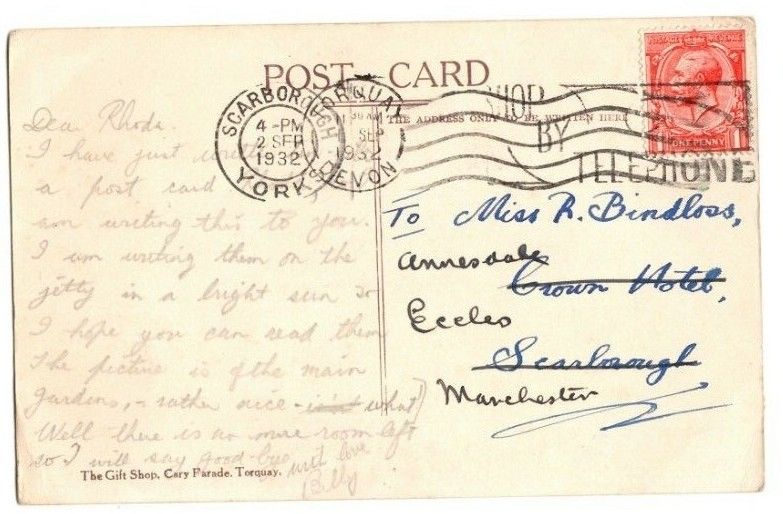 POST CARD
THE ADDRESS ONLY TO BE WRITTEN HERE
SCARBOROUGH
4 - PM
2 SEP
1932
YORKS
TORQUAY
SEP
1932
DEVON
SHOP
BY
TELEPHONE
POSTAGE REVENUE
ONE PENNY
Dear Rhoda.
I have just
a post card
am writing this to you.
I am writing them on the
jetty in a bright sun so
I hope you can read them
The picture is of the main
gardens, - rather nice - isn't what)
Well there is no more room left
so I will say good-bye
with love
Billy
To Miss R. Bindloss,
Annesdale
Crown Hotel,
Eccles
Scarborough
Manchester
The Gift Shop, Cary Parade, Torquay.